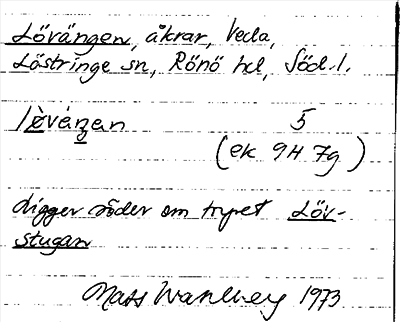 Lövängen, åkrar, Veda,
Lästringe sn, Rönö hd, Södl.
lø̀váŋan 5
(ek 9H 7g)
ligger söder om torpet Löv-
stugan
Mats Wahlberg 1973